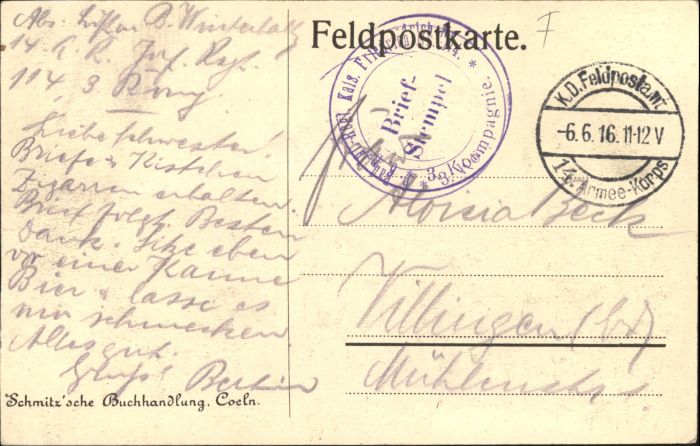 Feldpostkarte.
F
Abs. B. Winterhalt
14. A. K. Inf. Regt.
114, 3 Komp
Liebe Schwester!
Brief & Kistchen
Zigarren erhalten.
Brief folgt. Besten
Dank. Sitze eben
vor einer Kanne
Bier & lasse es
mir schmecken.
Alles gut.
Gruß
Kais. Friedrich
Brief-
Stempel
* 3. Kompagnie. *
K.D. Feldpostamt
-6.6.16.11-12V
14. Armee-Korps
Aloisia Beck
Villingen
Schmitz'sche Buchhandlung, Coeln.